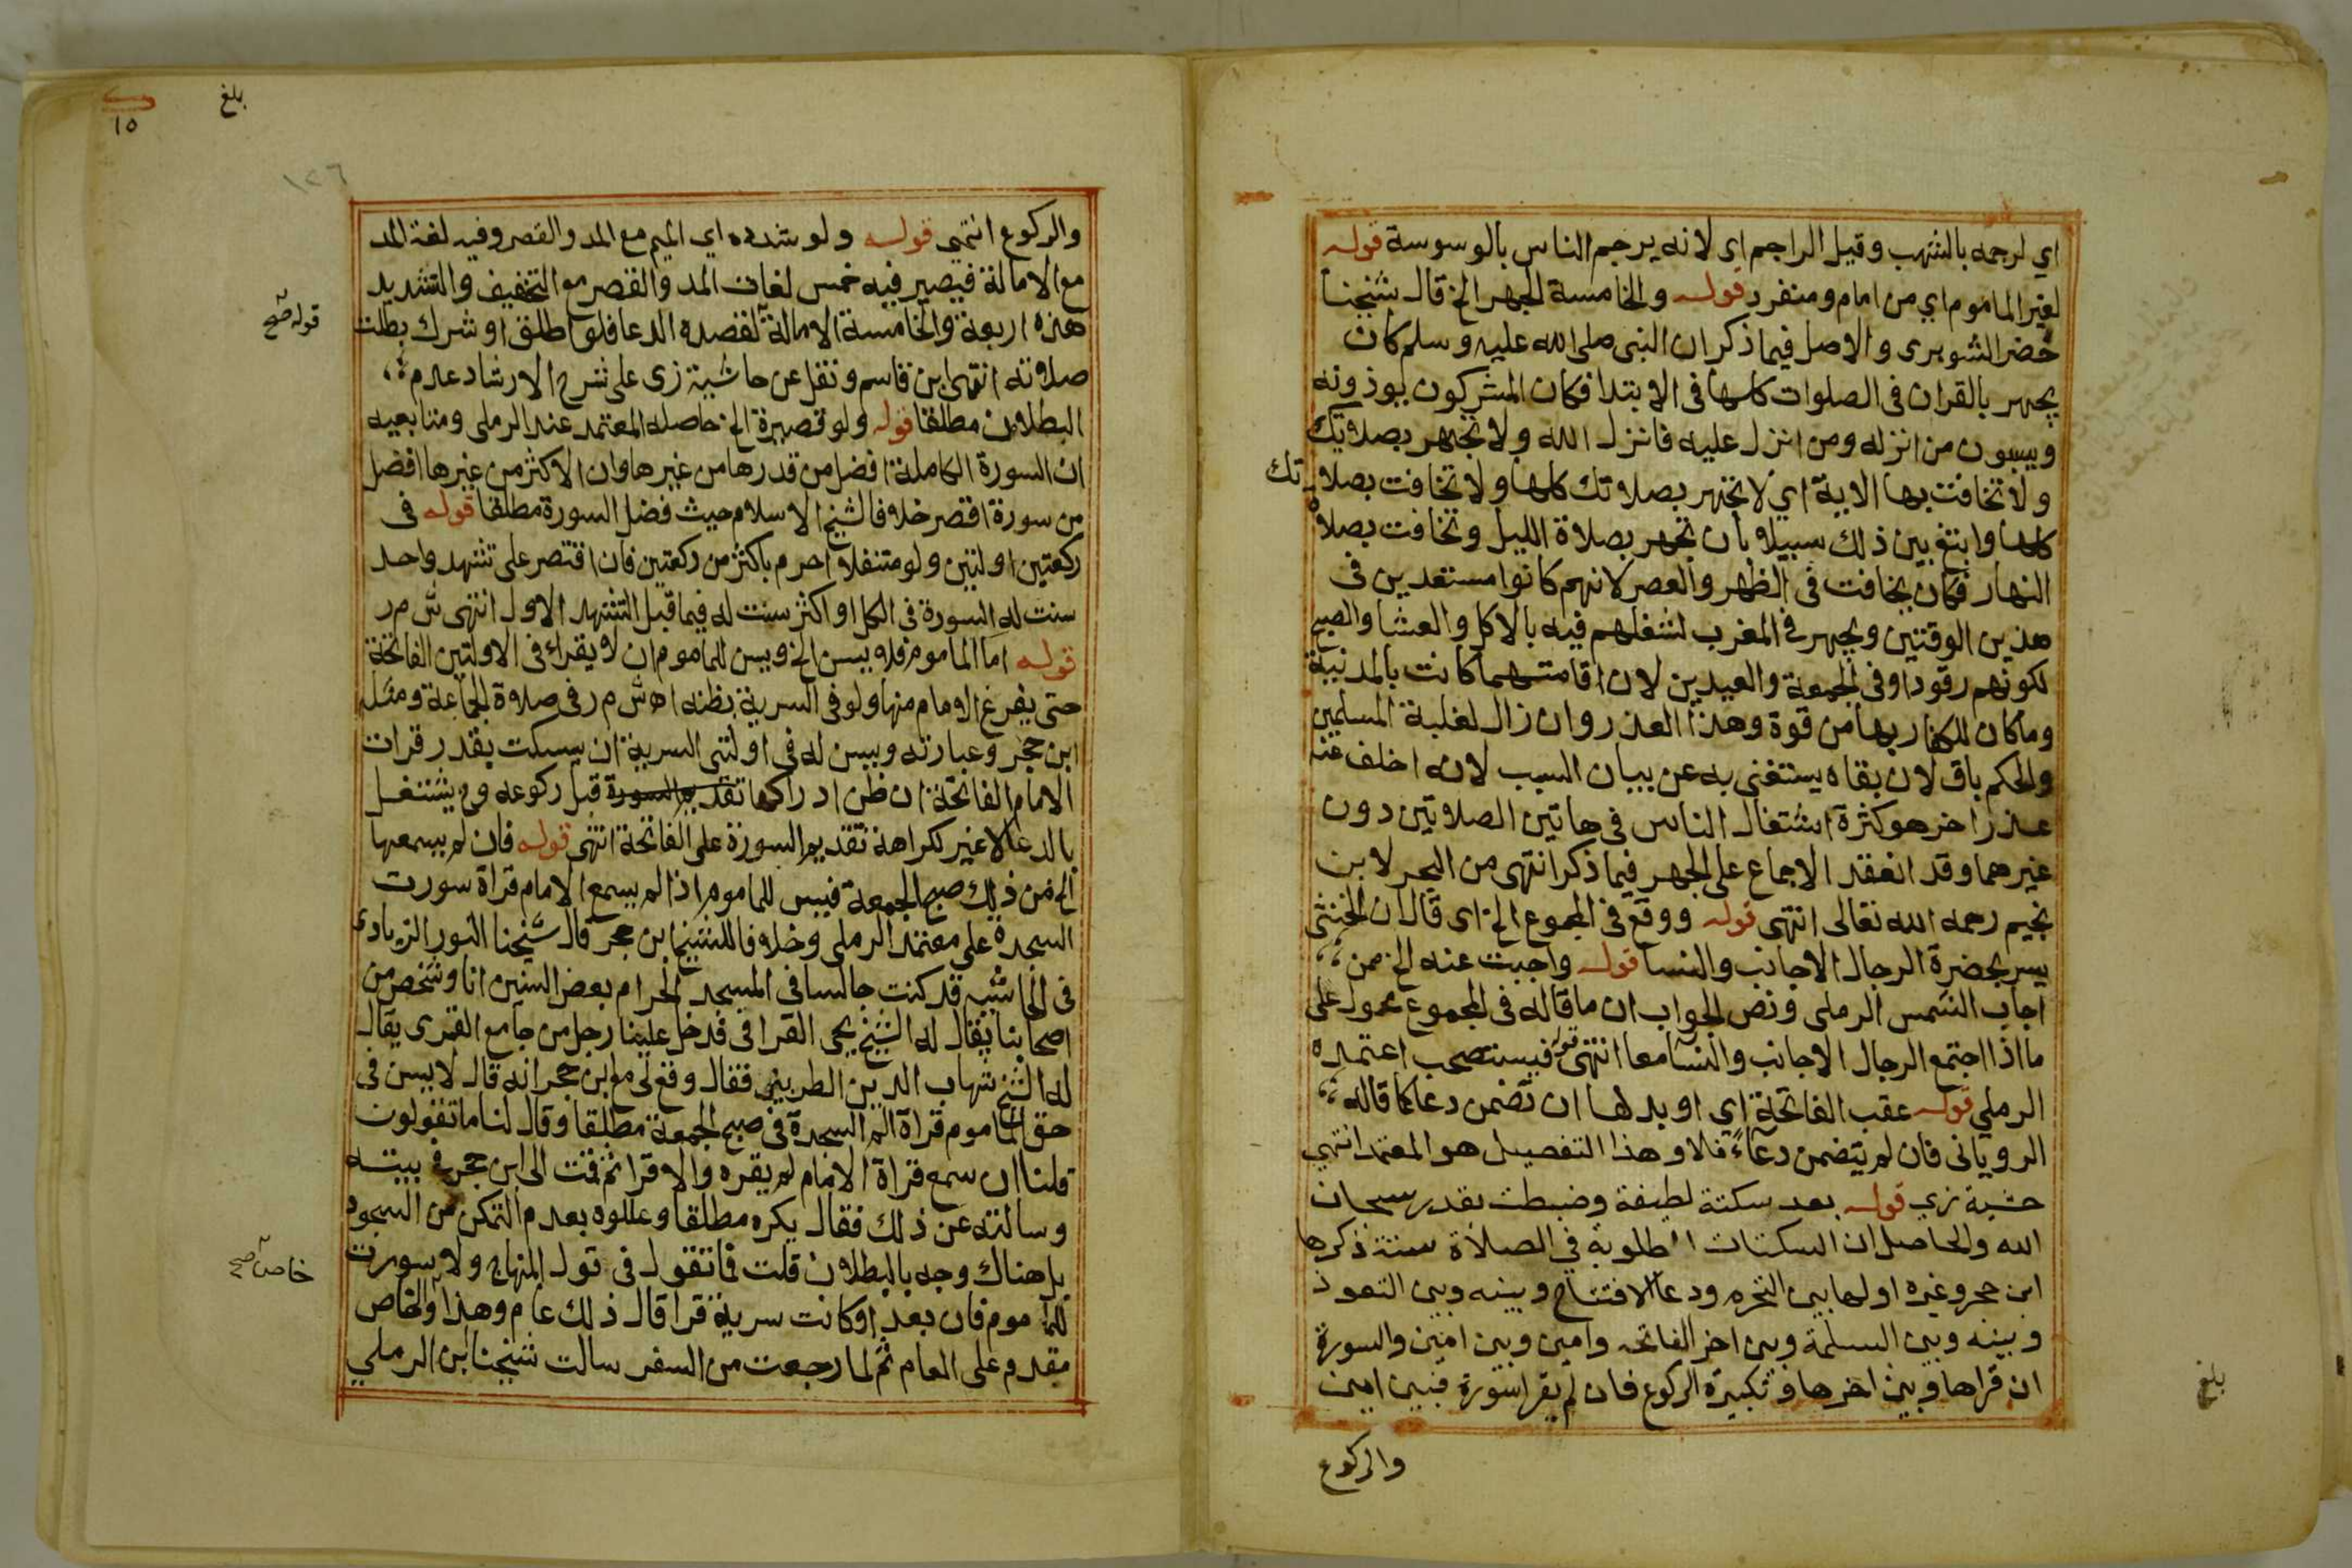 اي لرجمه بالشهب وقيل الراجم اى لانه يرجم الناس بالوسوسة قوله
لغير الماموم اي من امام ومنفرد قوله والخامسة الجهر الخ قال شيخنا
خضر الشوبرى والاصل فيما ذكر ان النبى صلى الله عليه وسلم كان
يجهر بالقران فى الصلوات كلها فى الابتدا فكان المشركون يوذونه
ويسبون من انزله ومن انزل عليه فانزل الله ولا تجهر بصلاتك
ولا تخافت بها الاية اي لا تجهر بصلاتك كلها ولا تخافت بصلاتك
كلها وابتغ بين ذلك سبيلا بان تجهر بصلاة الليل وتخافت بصلاة
النهار فكان يخافت فى الظهر والعصر لانهم كانوا مستعدين فى
هذين الوقتين ويجهر فى المغرب لشغلهم فيه بالاكل والعشا والصبح
لكونهم رقودا وفى الجمعة والعيدين لان اقامتهما كانت بالمدنية
وماكان للكفار بها من قوة وهذا العذر وان زال لغلبة المسلمين
والحكم باق لان بقاه يستغنى به عن بيان السبب لانه اخلف عنه
عذرا اخر هو كثرة اشتغال الناس فى هاتين الصلاتين دون
غيرهما وقد انعقد الاجماع على الجهر فيما ذكر انتهى من البحر لابن
نجيم رحمه الله تعالى انتهى قوله ووقع فى المجموع الخ اى قال ان الخنثى
يسر بحضرة الرجال الاجانب والنسا قوله واجبت عنه الخ ممن
اجاب الشمس الرملى ونص الجواب ان ما قاله فى المجموع محمول على
ما اذا اجتمع الرجال الاجانب والنسا معا انتهى قوله فيستصحب اعتمده
الرملي قوله عقب الفاتحة اي او بدلها ان تضمن دعا كما قاله
الرويانى فان لم يتضمن دعاءً فلا وهذا التفصيل هو المعتمد انتهي
حشية زي قوله بعد سكتة لطيفة وضبطت بقدر سبحان
الله والحاصل ان السكتات المطلوبة في الصلاة ستة ذكرها
ابن حجر وغيره اولها بين التحرم ودعا الافتتاح وبينه وبين التعوذ
وبينه وبين البسملة وبين اخر الفاتحه وامين وبين امين والسورة
ان قراها وبين اخرها وتكبيرة الركوع فان لم يقرا سورة فبين امين
والركوع
بلغ
بلغ
١٥
١٢٦
والركوع انتهى قوله ولو شدده اي الميم مع المد والقصر وفيه لغة المد
مع الامالة فيصير فيه خمس لغات المد والقصر مع التخفيف والتشديد
هذه اربعة والخامسة الامالة لقصده الدعا فلو اطلق او شرك بطلت
قوله صح
صلاته انتهى ابن قاسم ونقل عن حاشية زى على شرح الارشاد عدم
البطلان مطلقا قوله ولو قصيرة الخ حاصله المعتمد عند الرملى ومتابعيه
ان السورة الكاملة افضل من قدرها من غيرها وان الاكثر من غيرها افضل
من سورة اقصر خلافا لشيخ الاسلام حيث فضل السورة مطلقا قوله فى
ركعتين اولتين ولو متنفلا احرم باكثر من ركعتين فان اقتصر على تشهد واحد
سنت له السورة فى الكل او اكثر سنت له فيما قبل التشهد الاول انتهى ش م ر
قوله اما الماموم فلا يسن الخ ويسن للماموم ان لا يقرا فى الاولتين الفاتحة
حتى يفرغ الامام منها ولو فى السرية بظنه اه ش م ر فى صلاة الجماعة ومثله
ابن حجر وعبارته ويسن له فى اولتى السرية ان يسكت بقدر قرات
الامام الفاتحة ان ظن ادراكها تقديم السورة قبل ركوعه وح يشتغل
بالدعا لا غير لكراهة تقديم السورة على الفاتحة انتهى قوله فان لم يسمعها
الخ من ذلك صبح الجمعة فيسن للماموم اذا لم يسمع الامام قراة سورت
السجدة على معتمد الرملى وخلافا للشيخ ابن حجر قال شيخنا النور الزيادى
فى الحاشيه قد كنت جالسا فى المسجد الحرام بعض السنين انا وشخص من
اصحابنا يقال له الشيخ يحى القرافى فدخل علينا رجل من جامع القمرى يقال
له الشيخ شهاب الدين الطريينى فقال وقع لى مع ابن حجر انه قال لا يسن فى
حق الماموم قراة الم السجدة فى صبح الجمعة مطلقا وقال لنا ما تقولون
قلنا ان سمع قراة الامام لم يقره والا قرا ثم قمت الى ابن حجر فى بيته
وسالته عن ذلك فقال يكره مطلقا وعللوه بعدم التمكن من السجود
بل هناك وجه بالبطلان قلت فما تقول فى قول المنهاج ولا سورت
خاص صح
للماموم فان بعد او كانت سرية قرا قال ذلك عام وهذا والخاص
مقدم على العام ثم لما رجعت من السفر سالت شيخنا ابن الرملي